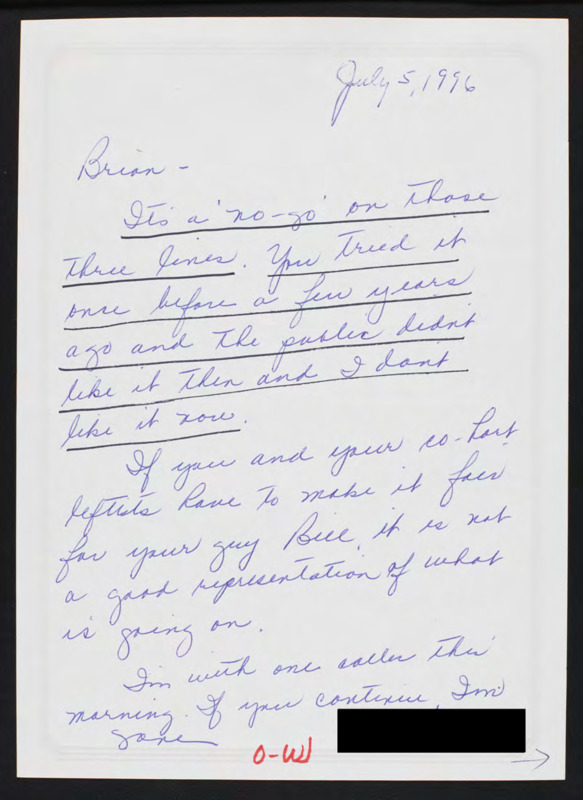 July 5, 1996
Brian -
Its a 'no-go' on those
three lines. You tried it
once before a few years
ago and the public didn't
like it then and I don't
like it now.
If you and your co-hort
leftists have to make it fair
for your guy Bill, it is not
a good representation of what
is going on.
I'm with one caller this
morning. If you continue, I'm
gone
O-W